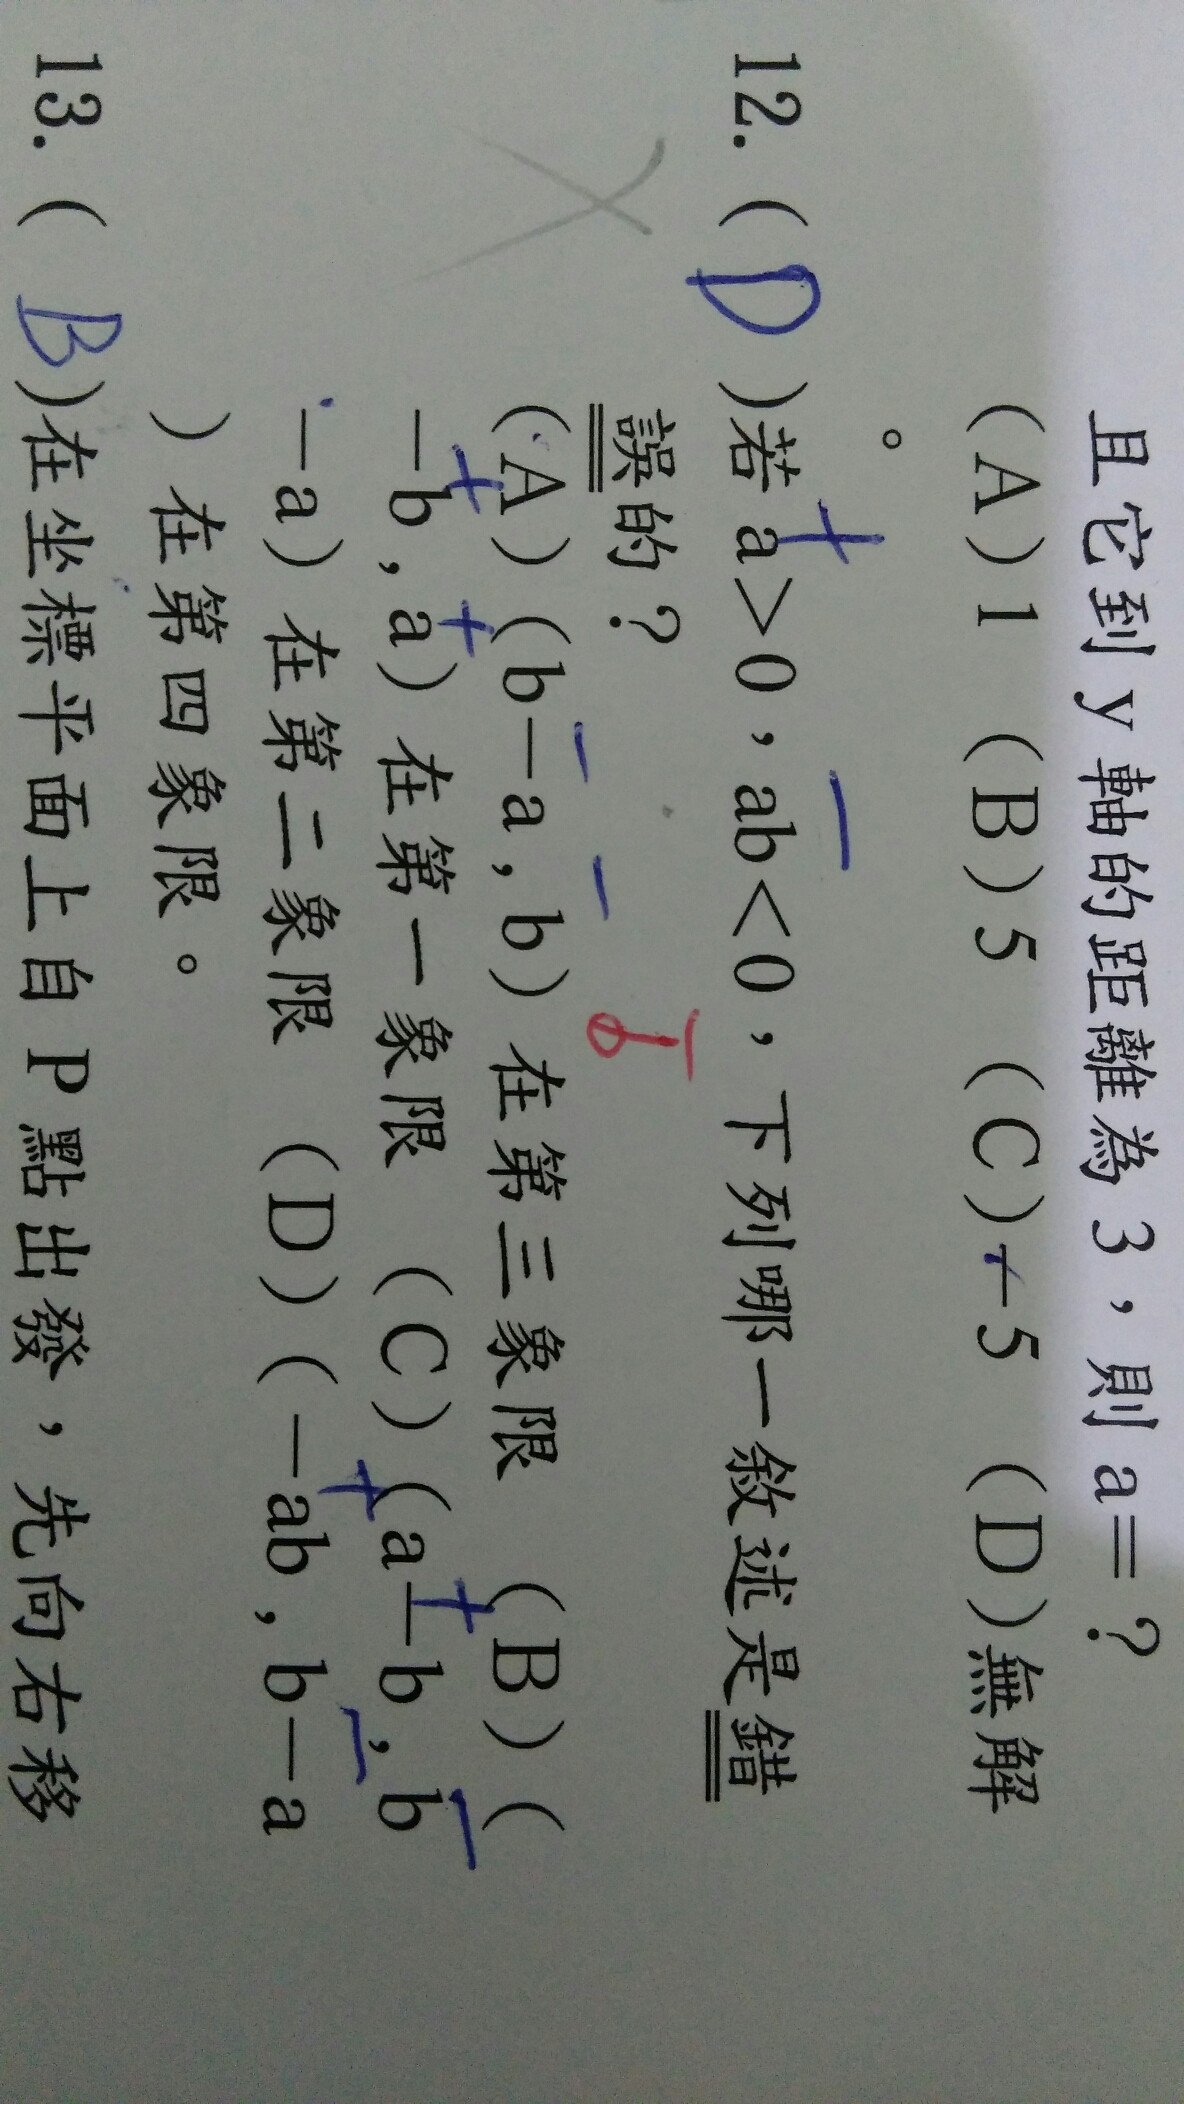 且它到y軸的距離為3，則a=？
(A)1 (B)5 (C)-5 (D)無解
。
12.( D )若a>0，ab<0，下列哪一敘述是錯
誤的？
(A)(b-a,b)在第三象限 (B)(
-b,a)在第一象限 (C)(a-b,b
-a)在第二象限 (D)(-ab,b-a
)在第四象限。
13.( B )在坐標平面上自P點出發，先向右移